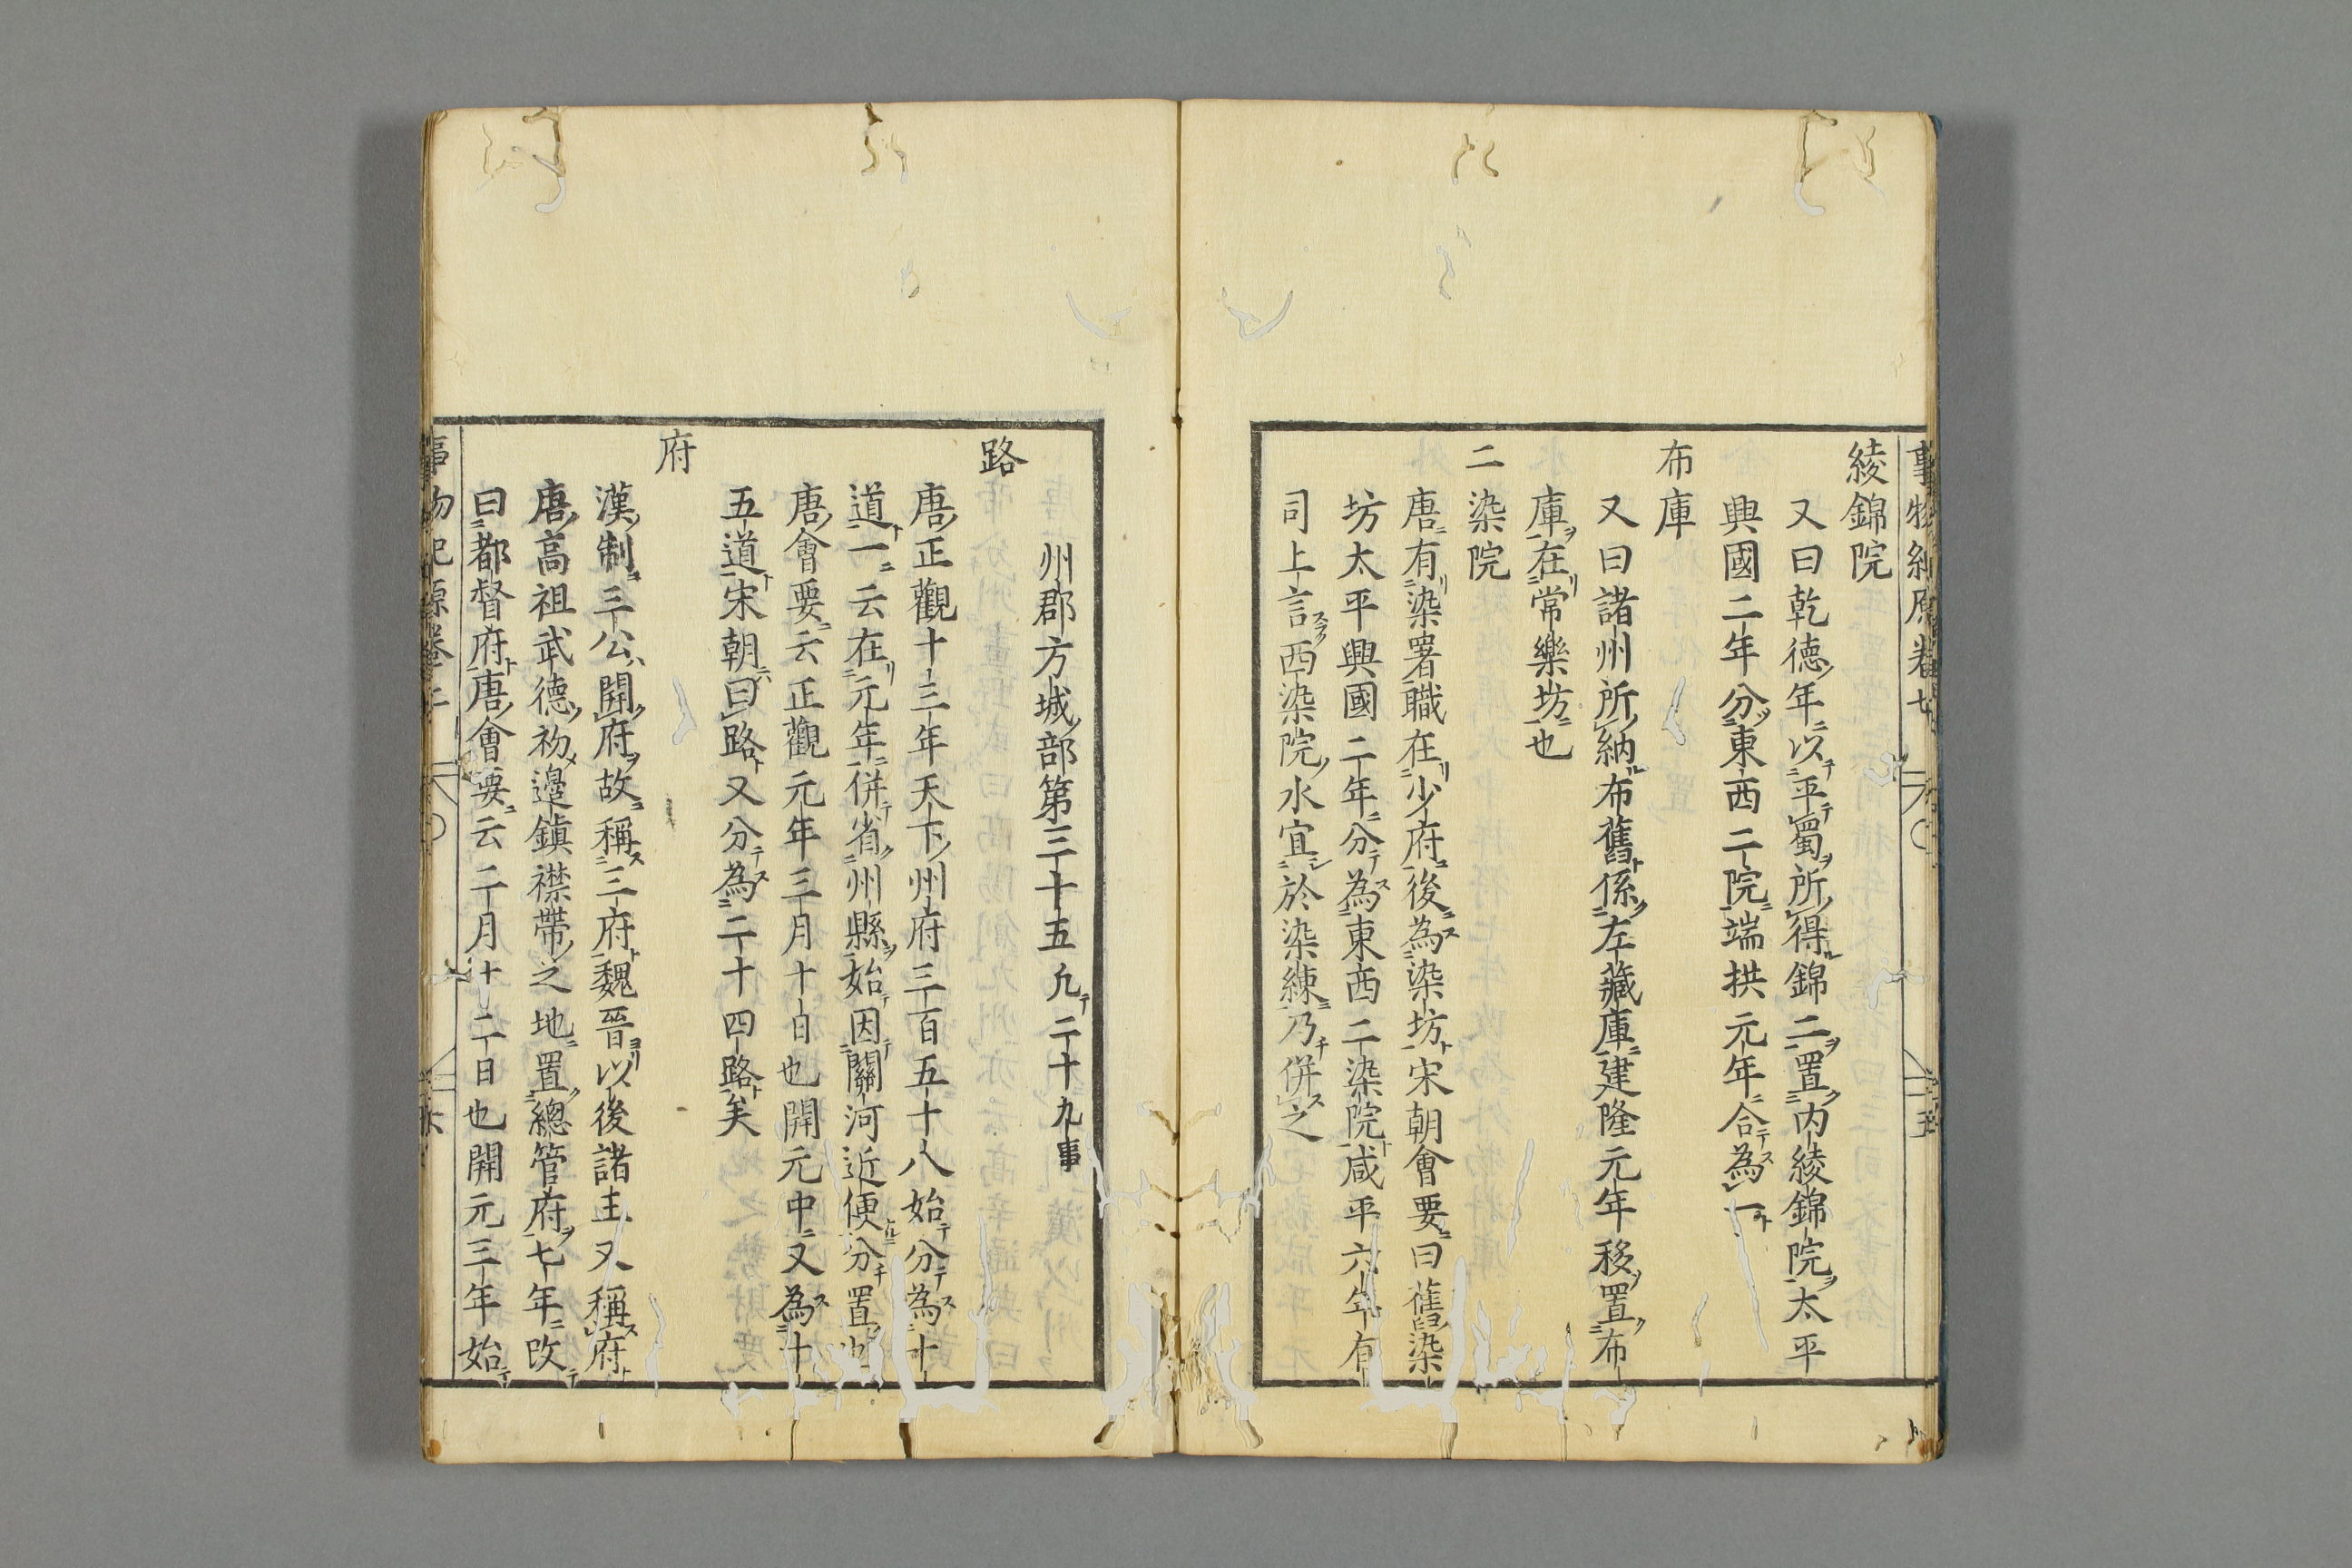 綾錦院
又曰乾德年以平蜀所得錦二置内綾錦院太平
興國二年分東西二院端拱元年合為一
布庫
又曰諸州所納布舊係左藏庫建隆元年移置布
庫在常樂坊也
二染院
唐有染署職在少府後為染坊宋朝會要曰舊染
坊太平興國二年分為東西二染院咸平六年有
司上言西染院水宜於染練乃併之
州郡方城部第三十五凡二十九事
路
唐正觀十三年天下州府三百五十八始分為十
道一云在元年併省州縣始因關河近便分置也
唐會要云正觀元年三月十日也開元中又為十
五道宋朝曰路又分為二十四路矣
府
漢制三公開府故稱三府魏晉以後諸王又稱府
唐高祖武德初邊鎮襟帶之地置總管府七年改
曰都督府唐會要云二月十二日也開元三年始